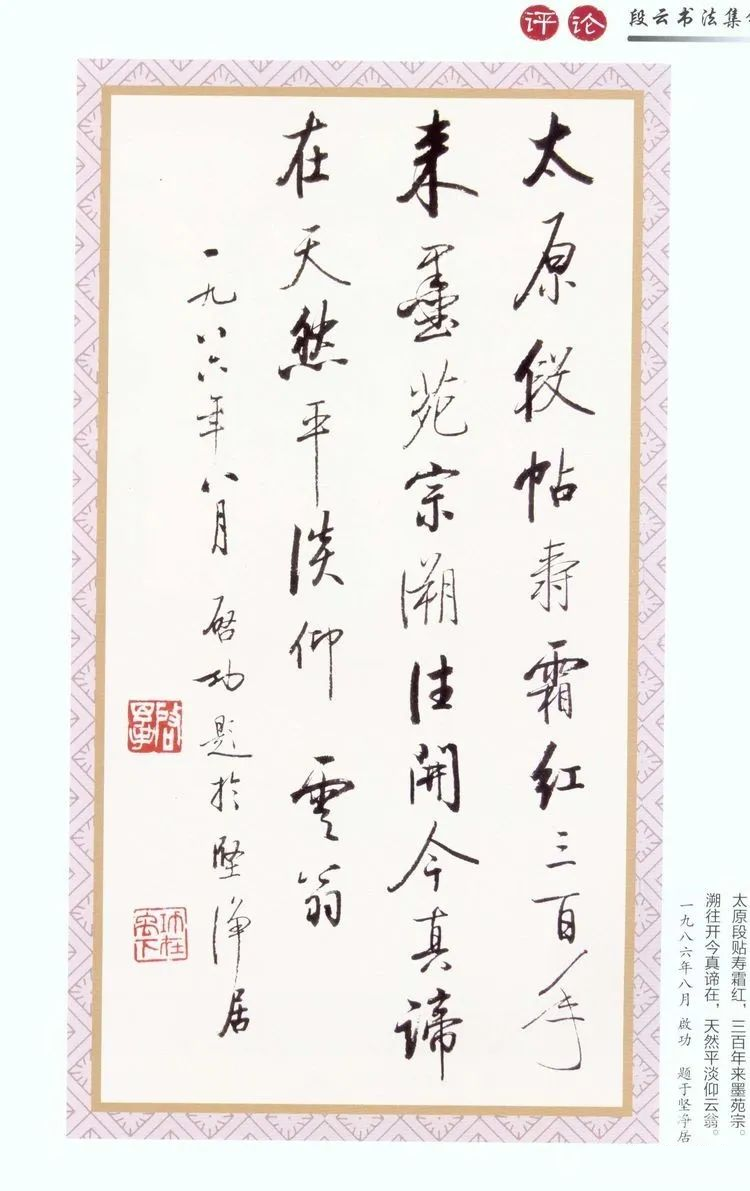 评论
段云书法集
太原段帖寿霜红三百年
来墨苑宗溯往開今真諦
在天然平淡仰雲翁
一九八六年八月 啓功題於堅净居
启功
太原段贴寿霜红，三百年来墨苑宗。
溯往开今真谛在，天然平淡仰云翁。
一九八六年八月 啟功 题于坚净居